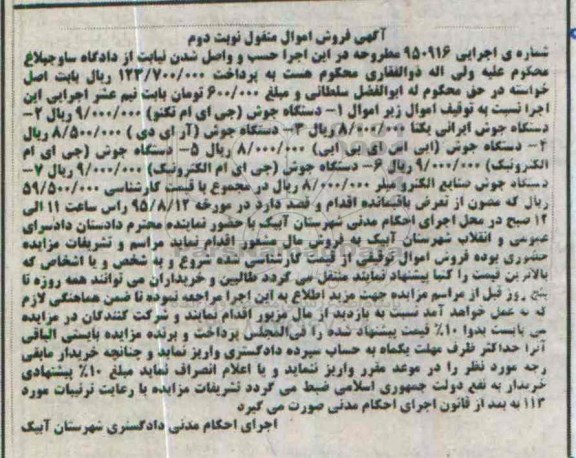 آگهی فروش اموال منقول نوبت دوم
شماره ی اجرایی ۹۵۰۹۱۶ مطروحه در این اجرا حسب و واصل شدن نیابت از دادگاه ساوجبلاغ
محکوم علیه ولی اله ذوالفقاری محکوم هست به پرداخت ۱۲۳/۷۰۰/۰۰۰ ریال بابت اصل
خواسته در حق محکوم له ابوالفضل سلطانی و مبلغ ۶۰۰/۰۰۰ تومان بابت نیم عشر اجرایی این
اجرا نسبت به توقیف اموال زیر اموال ۱- دستگاه جوش (جی ای ام تکنو) ۹/۰۰۰/۰۰۰ ریال ۲-
دستگاه جوش ایرانی یکتا ۸/۰۰۰/۰۰۰ ریال ۳- دستگاه جوش (آر ای دی ) ۸/۵۰۰/۰۰۰ ریال
۴- دستگاه جوش (ایی اس ای بی ایی) ۸/۰۰۰/۰۰۰ ریال ۵- دستگاه جوش (جی ای ام
الکترونیک) ۹/۰۰۰/۰۰۰ ریال ۶- دستگاه جوش (جی ای ام الکترونیک) ۹/۰۰۰/۰۰۰ ریال ۷-
دستگاه جوش صنایع الکترو میلر ۸/۰۰۰/۰۰۰ ریال در مجموع با قیمت کارشناسی ۵۹/۵۰۰/۰۰۰
ریال که مصون از تعرض باقیمانده اقدام و قصد دارد در مورخه ۹۵/۸/۱۲ راس ساعت ۱۱ الی
۱۲ صبح در محل اجرای احکام مدنی شهرستان آبیک با حضور نماینده محترم دادستان دادسرای
عمومی و انقلاب شهرستان آبیک به فروش مال مشعور اقدام نماید مراسم و تشریفات مزایده
حضوری بوده فروش اموال توقیفی از قیمت کارشناسی شده شروع و به شخص و یا اشخاص که
بالاترین قیمت را کتبا پیشنهاد نمایند منتقل می گردد طالبین و خریداران می توانند همه روزه تا
پنج روز قبل از مراسم مزایده جهت مزید اطلاع به این اجرا مراجعه نموده تا ضمن هماهنگی لازم
که به عمل خواهد آمد نسبت به بازدید از مال مزبور اقدام نمایند و شرکت کنندگان در مزایده
می بایست بدوا ۱۰٪ قیمت پیشنهاد شده را فی‌المجلس پرداخت و برنده مزایده بایستی الباقی
آنرا حداکثر ظرف مهلت یکماه به حساب سپرده دادگستری واریز نماید و چنانچه خریدار مابقی
وجه مورد نظر را در موعد مقرر واریز ننماید و یا اعلام انصراف نماید مبلغ ۱۰٪ پیشنهادی
خریدار به نفع دولت جمهوری اسلامی ضبط می گردد تشریفات مزایده با رعایت ترتیبات مورد
۱۱۳ به بعد از قانون اجرای احکام مدنی صورت می گیرد
اجرای احکام مدنی دادگستری شهرستان آبیک